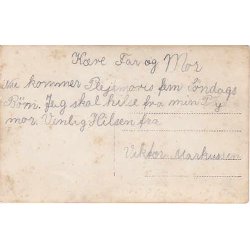 Kære Far og Mor
Nu kommer Plejemors fem Søndags
Børn. Jeg skal hilse fra min Ty
mor. Venlig Hilsen fra
Viktor Markussen